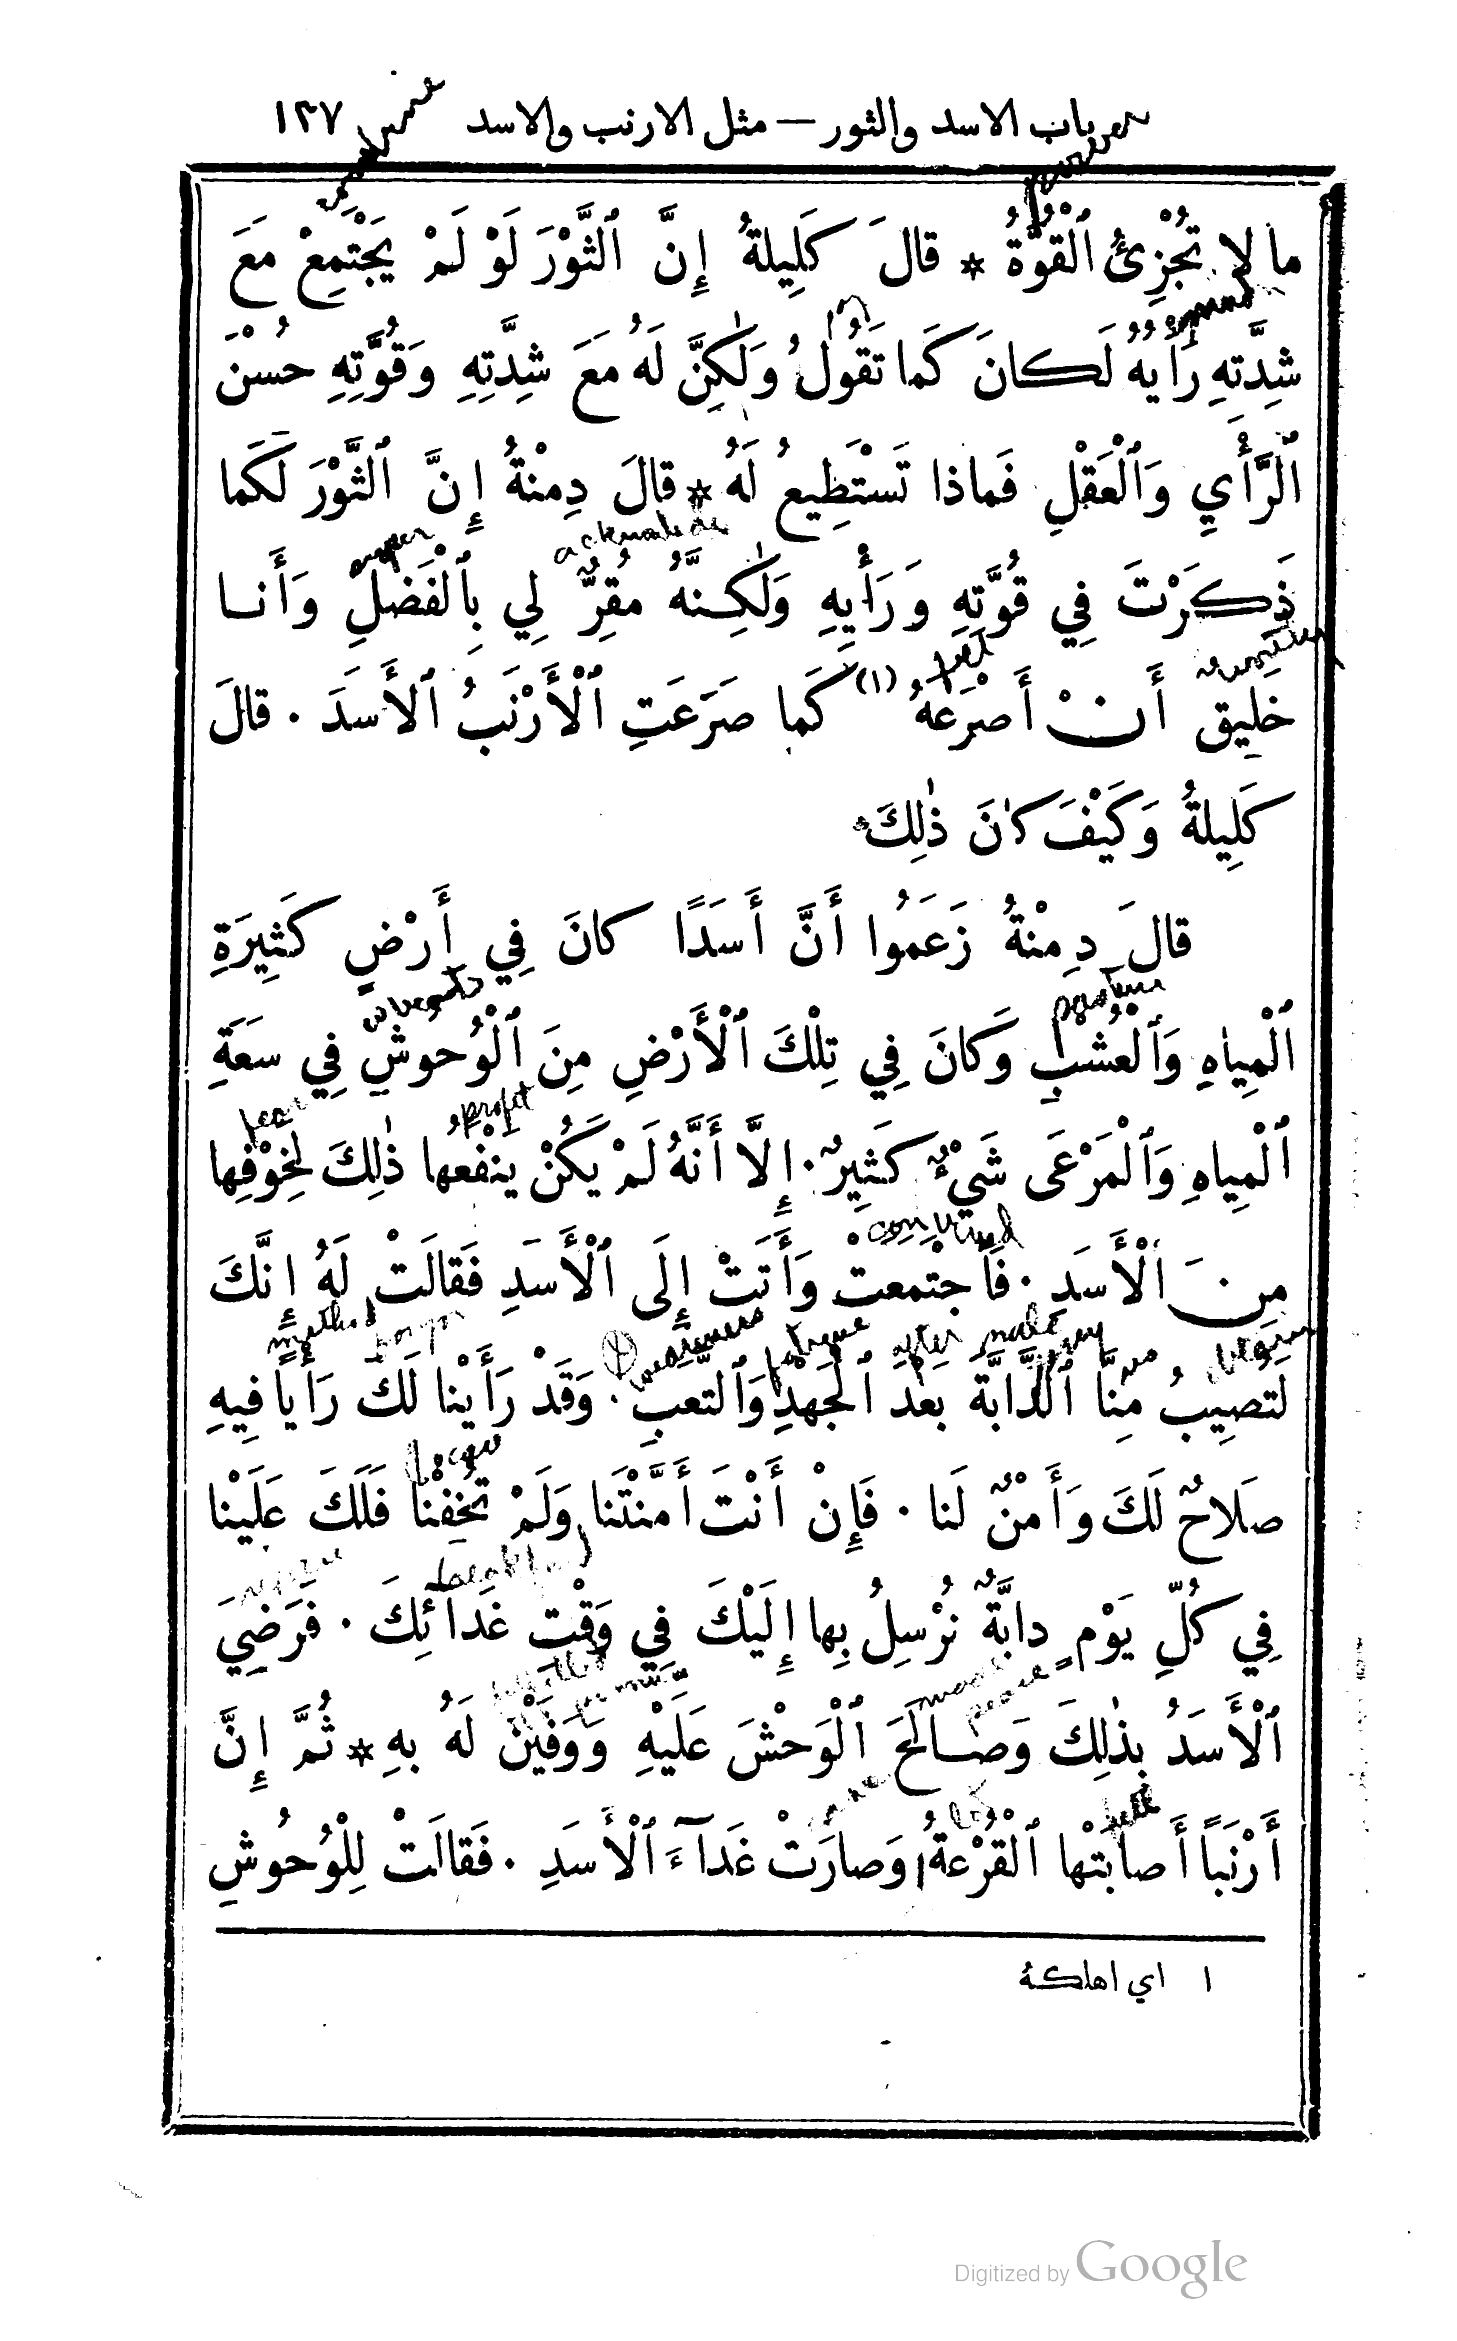 باب الاسد والثور — مثل الارنب والاسد ١٣٧
ما لا تُجْزِئُ ٱلْقُوَّةُ * قالَ كَلِيلةُ إِنَّ ٱلثَّوْرَ لَوْ لَمْ يَجْتَمِعْ مَعَ
power
شِدَّتِهِ رَأْيُهُ لَكانَ كَما تَقُولُ وَلٰكِنَّ لَهُ مَعَ شِدَّتِهِ وَقُوَّتِهِ حُسْنَ
ٱلرَّأْيِ وَٱلْعَقْلِ فَماذا تَسْتَطِيعُ لَهُ * قالَ دِمْنةُ إِنَّ ٱلثَّوْرَ لَكَما
ذَكَرْتَ فِي قُوَّتِهِ وَرَأْيِهِ وَلٰكِنَّهُ مُقِرٌّ لِي بِٱلْفَضْلِ وَأَنا
خلِيق أَنْ أَصْرَعَهُ (١) كَما صَرَعَتِ ٱلْأَرْنَبُ ٱلأَسدَ . قالَ
كَلِيلةُ وَكَيْفَ كانَ ذٰلِكَ
قالَ دِمْنةُ زَعَمُوا أَنَّ أَسَدًا كانَ فِي أَرْضٍ كَثِيرَةِ
pasture
ٱلْمِياهِ وَٱلْعُشْبِ وَكانَ فِي تِلْكَ ٱلْأَرْضِ مِنَ ٱلْوُحُوشِ فِي سَعَةِ
fear profit
ٱلْمِياهِ وَٱلْمَرْعَى شَيْءٌ كَثِيرٌ . إِلَّا أَنَّهُ لَمْ يَكُنْ يَنْفَعُها ذٰلِكَ لِخَوْفِها
مِنَ ٱلْأَسَدِ . فَٱجْتَمعتْ وَأَتَتْ إِلَى ٱلْأَسَدِ فَقالَتْ لَهُ إِنَّكَ
method fatigue after
لَتُصِيبُ مِنَّا ٱلدَّابَّةَ بَعْدَ ٱلْجَهْدِ وَٱلتَّعَبِ . وَقَدْ رَأَيْنا لَكَ رَأْيًا فِيهِ
صَلاحٌ لَكَ وَأَمْنٌ لَنا . فَإِنْ أَنْتَ أَمَّنْتَنا وَلَمْ تُخِفْنا فَلَكَ عَلَيْنا
breakfast
فِي كُلِّ يَوْمٍ دابَّةٌ نُرْسِلُ بِها إِلَيْكَ فِي وَقْتِ غَدائِكَ . فَرَضِيَ
made peace
ٱلْأَسَدُ بِذٰلِكَ وَصالَحَ ٱلْوَحْشَ عَلَيْهِ وَوَفَيْنَ لَهُ بِهِ * ثُمَّ إِنَّ
أَرْنَبًا أَصابَتْها ٱلْقُرْعةُ وَصارَتْ غَدَآءَ ٱلْأَسَدِ . فَقالَتْ لِلْوُحُوشِ
١ اي اهلكهُ
Digitized by Google